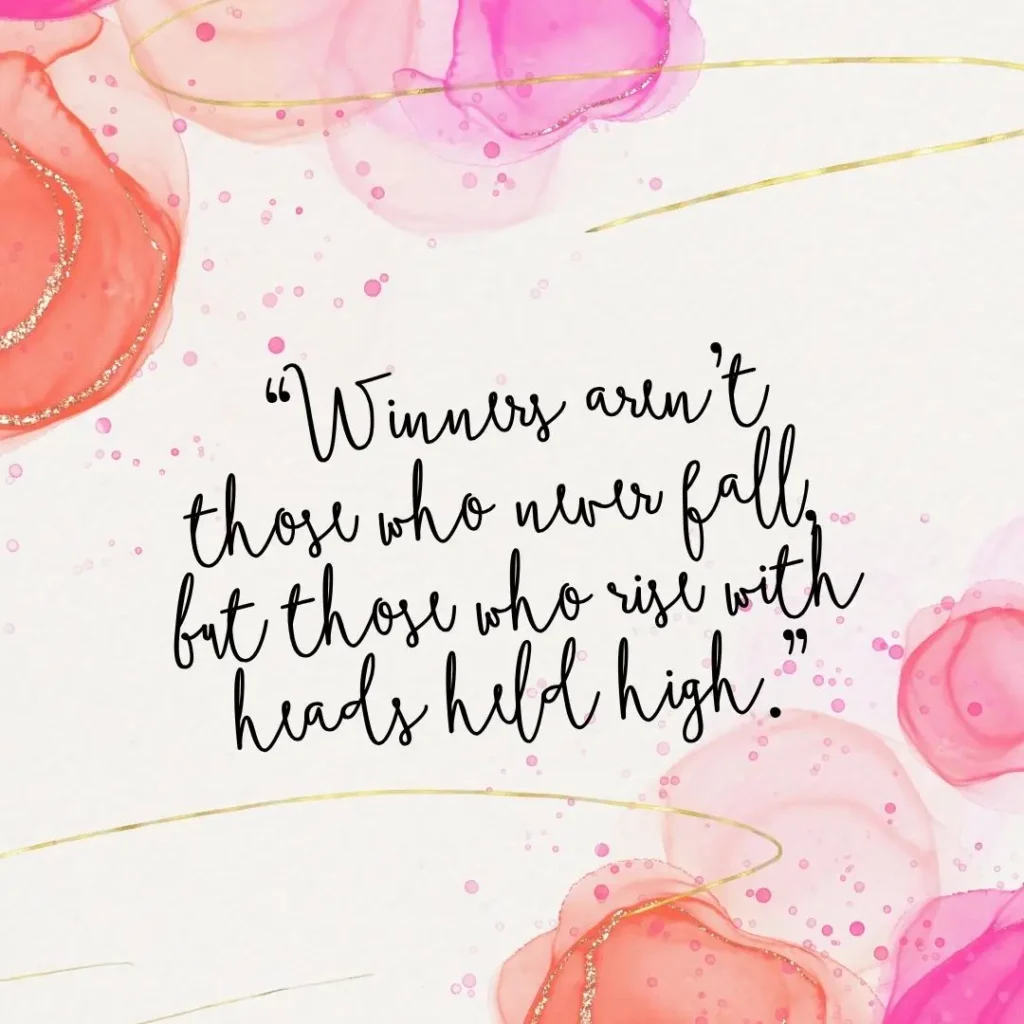 “Winners aren’t
those who never fall,
but those who rise with
heads held high.”